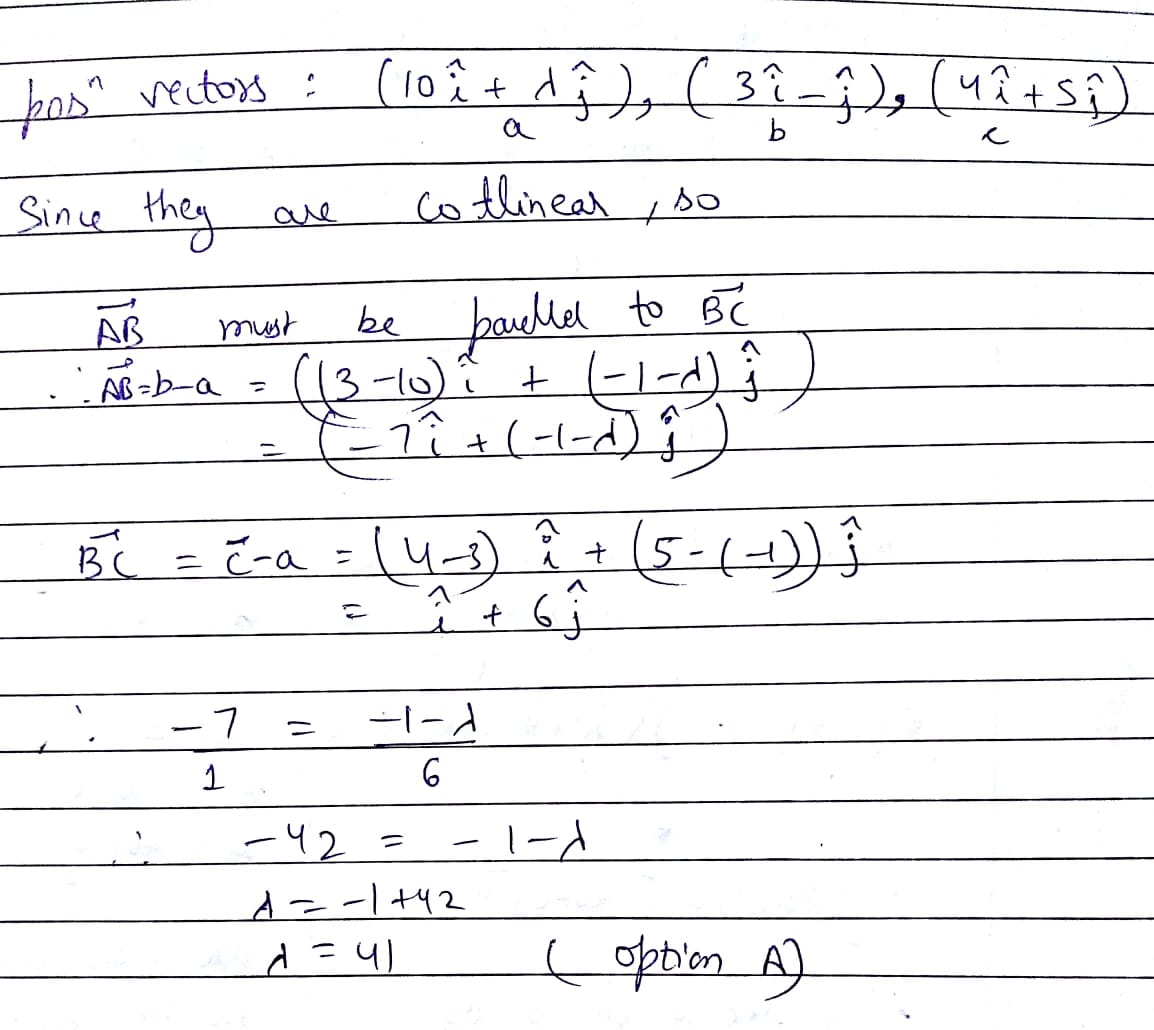 posⁿ vectors : (10î + λĵ), (3î - ĵ), (4î + 5ĵ)
a b c
Since they are collinear, so
AB⃗ must be parallel to BC⃗
∴ AB⃗ = b - a = ((3 - 10)î + (-1 - λ)ĵ)
= (-7î + (-1 - λ)ĵ)
BC⃗ = c⃗ - a = (4 - 3)î + (5 - (-1))ĵ
= î + 6ĵ
∴ -7/1 = (-1 - λ)/6
∴ -42 = -1 - λ
λ = -1 + 42
λ = 41 (option A)